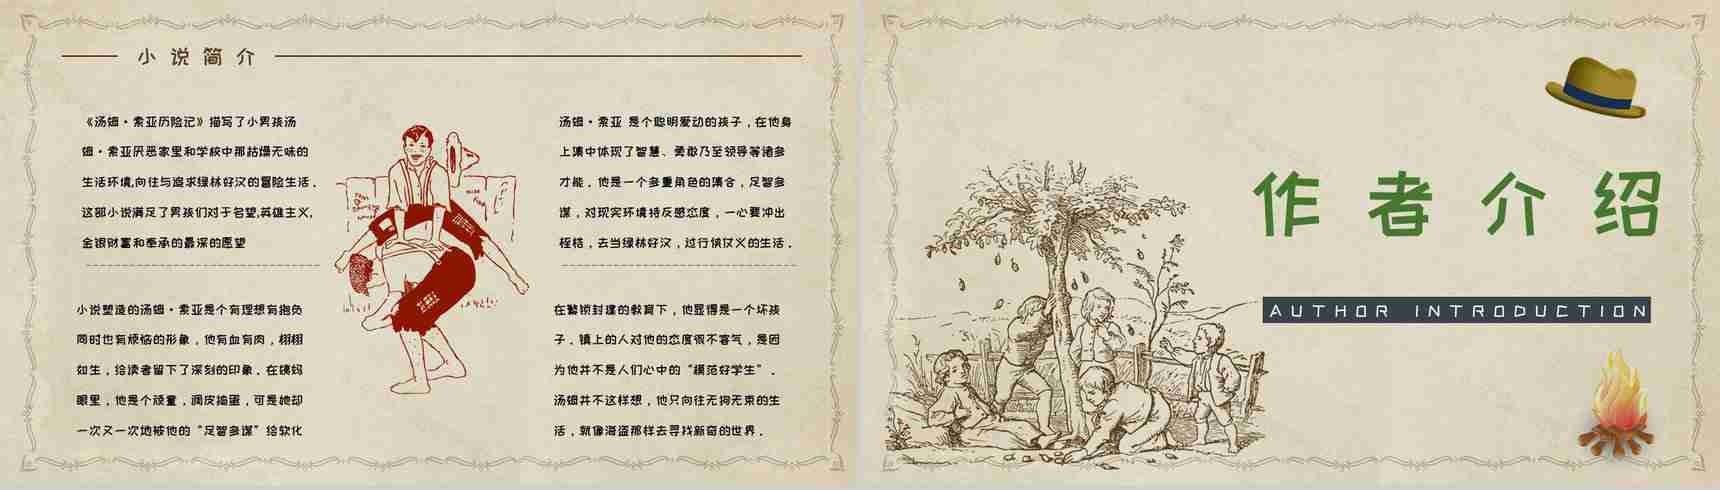 小说简介
《汤姆·索亚历险记》描写了小男孩汤
姆·索亚厌恶家里和学校中那枯燥无味的
生活环境,向往与追求绿林好汉的冒险生活.
这部小说满足了男孩们对于名望,英雄主义,
金银财富和奉承的最深的愿望
小说塑造的汤姆·索亚是个有理想有抱负
同时也有烦恼的形象，他有血有肉，栩栩
如生，给读者留下了深刻的印象．在姨妈
眼里，他是个顽童，调皮捣蛋，可是她却
一次又一次地被他的“足智多谋”给软化
汤姆·索亚 是个聪明爱动的孩子，在他身
上集中体现了智慧、勇敢乃至领导等诸多
才能．他是一个多重角色的集合，足智多
谋，对现实环境持反感态度，一心要冲出
桎梏，去当绿林好汉，过行侠仗义的生活．
在繁锁封建的教育下，他显得是一个坏孩
子．镇上的人对他的态度很不客气，是因
为他并不是人们心中的“模范好学生”．
汤姆并不这样想，他只向往无拘无束的生
活，就像海盗那样去寻找新奇的世界．
作者介绍
AUTHOR INTRODUCTION